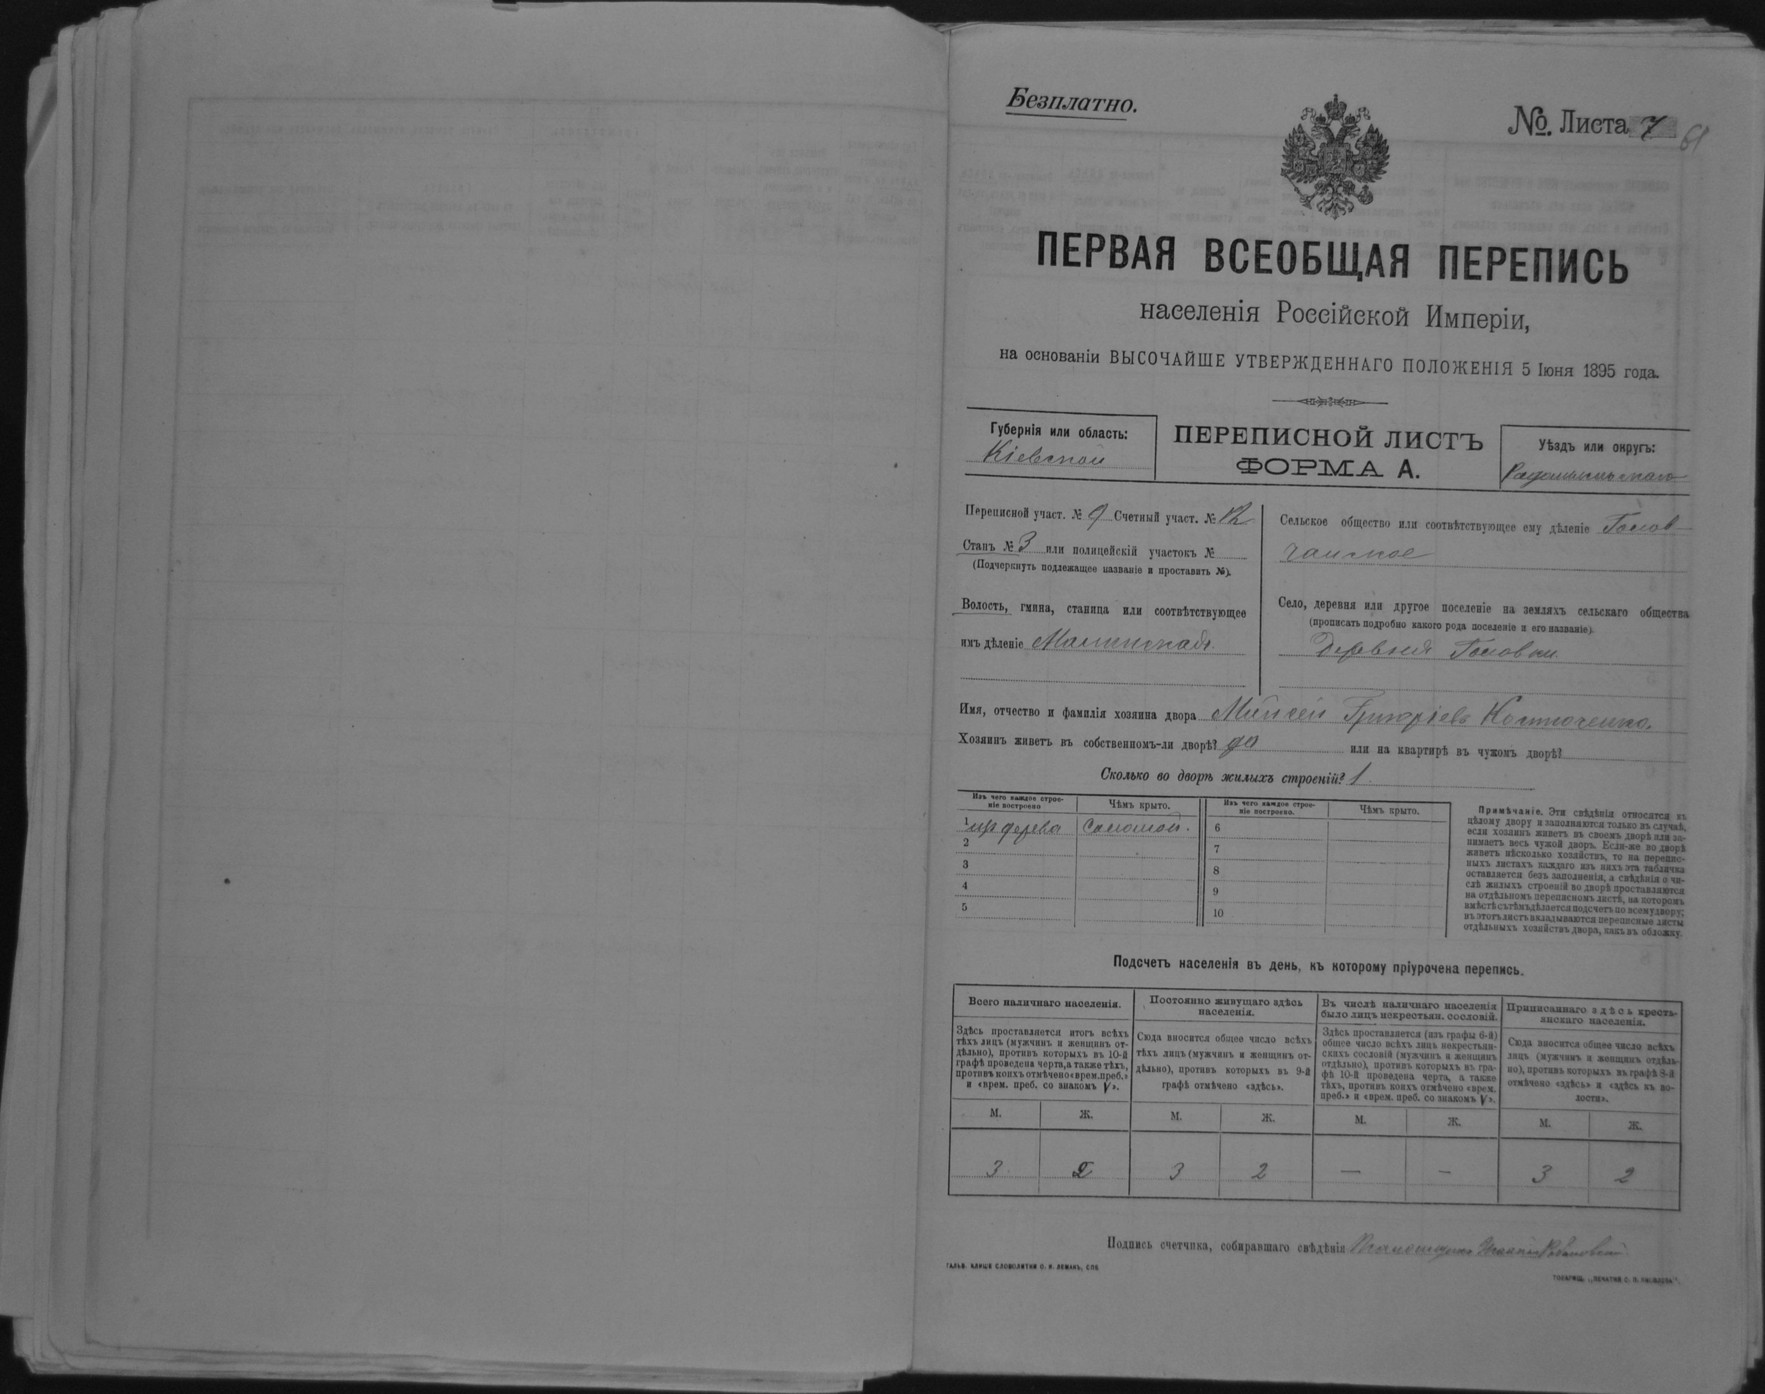 Безплатно.
№. Листа 7
61
ПЕРВАЯ ВСЕОБЩАЯ ПЕРЕПИСЬ
населенія Россійской Имперіи,
на основаніи ВЫСОЧАЙШЕ УТВЕРЖДЕННАГО ПОЛОЖЕНІЯ 5 Іюня 1895 года.
Губернія или область:
Кіевской
ПЕРЕПИСНОЙ ЛИСТЪ
ФОРМА А.
Уѣздъ или округъ:
Радомысльскаго
Переписной участ. № 9 Счетный участ. № 12
Станъ № 3 или полицейскій участокъ №
(Подчеркнуть подлежащее названіе и проставить №).
Волость, гмина, станица или соотвѣтствующее
имъ дѣленіе Малинская
Сельское общество или соотвѣтствующее ему дѣленіе Голов
чанское
Село, деревня или другое поселеніе на земляхъ сельскаго общества
(прописать подробно какого рода поселеніе и его названіе).
Деревня Головки
Имя, отчество и фамилія хозяина двора Мойсей Григоріевъ Костюченко.
Хозяинъ живетъ въ собственномъ-ли дворѣ? да или на квартирѣ въ чужомъ дворѣ?
Сколько во дворѣ жилыхъ строеній? 1
Изъ чего каждое строе-
ніе построено
Чѣмъ крыто.
Изъ чего каждое строе-
ніе построено.
Чѣмъ крыто.
1 изъ дерева Соломой.
2
3
4
5
6
7
8
9
10
Примѣчаніе. Эти свѣдѣнія относятся къ
цѣлому двору и заполняются только въ случаѣ,
если хозяинъ живетъ въ своемъ дворѣ или за-
нимаетъ весь чужой дворъ. Если-же во дворѣ
живетъ нѣсколько хозяйствъ, то на перепис-
ныхъ листахъ каждаго изъ нихъ эта табличка
оставляется безъ заполненія, а свѣдѣнія о чи-
слѣ жилыхъ строеній во дворѣ проставляются
на отдѣльномъ переписномъ листѣ, на которомъ
вмѣстѣ съ тѣмъ дѣлается подсчетъ по всему двору;
въ этотъ листъ вкладываются переписные листы
отдѣльныхъ хозяйствъ двора, какъ въ обложку.
Подсчетъ населенія въ день, къ которому пріурочена перепись.
Всего наличнаго населенія.
Здѣсь проставляется итогъ всѣхъ
тѣхъ лицъ (мужчинъ и женщинъ от-
дѣльно), противъ которыхъ въ 10-й
графѣ проведена черта, а также тѣхъ,
противъ коихъ отмѣчено «врем. преб.»
и «врем. преб. со знакомъ V».
Постоянно живущаго здѣсь
населенія.
Сюда вносится общее число всѣхъ
тѣхъ лицъ (мужчинъ и женщинъ от-
дѣльно), противъ которыхъ въ 9-й
графѣ отмѣчено «здѣсь».
Въ числѣ наличнаго населенія
было лицъ некрестьян. сословій.
Здѣсь проставляется (изъ графы 6-й)
общее число всѣхъ лицъ некрестьян-
скихъ сословій (мужчинъ и женщинъ
отдѣльно), противъ которыхъ въ гра-
фѣ 10-й проведена черта, а также
тѣхъ, противъ коихъ отмѣчено «врем.
преб.» и «врем. преб. со знакомъ V».
Приписаннаго здѣсь кресть-
янскаго населенія.
Сюда вносится общее число всѣхъ
лицъ (мужчинъ и женщинъ отдѣль-
но), противъ которыхъ въ графѣ 8-й
отмѣчено «здѣсь» и «здѣсь къ во-
лости».
М. Ж. М. Ж. М. Ж. М. Ж.
3 2 3 2 — — 3 2
Подпись счетчика, собиравшаго свѣдѣнія
ГАЛЬВ. КЛИШЕ СЛОВОЛИТНИ О. И. ЛЕМАНЪ, СПБ.